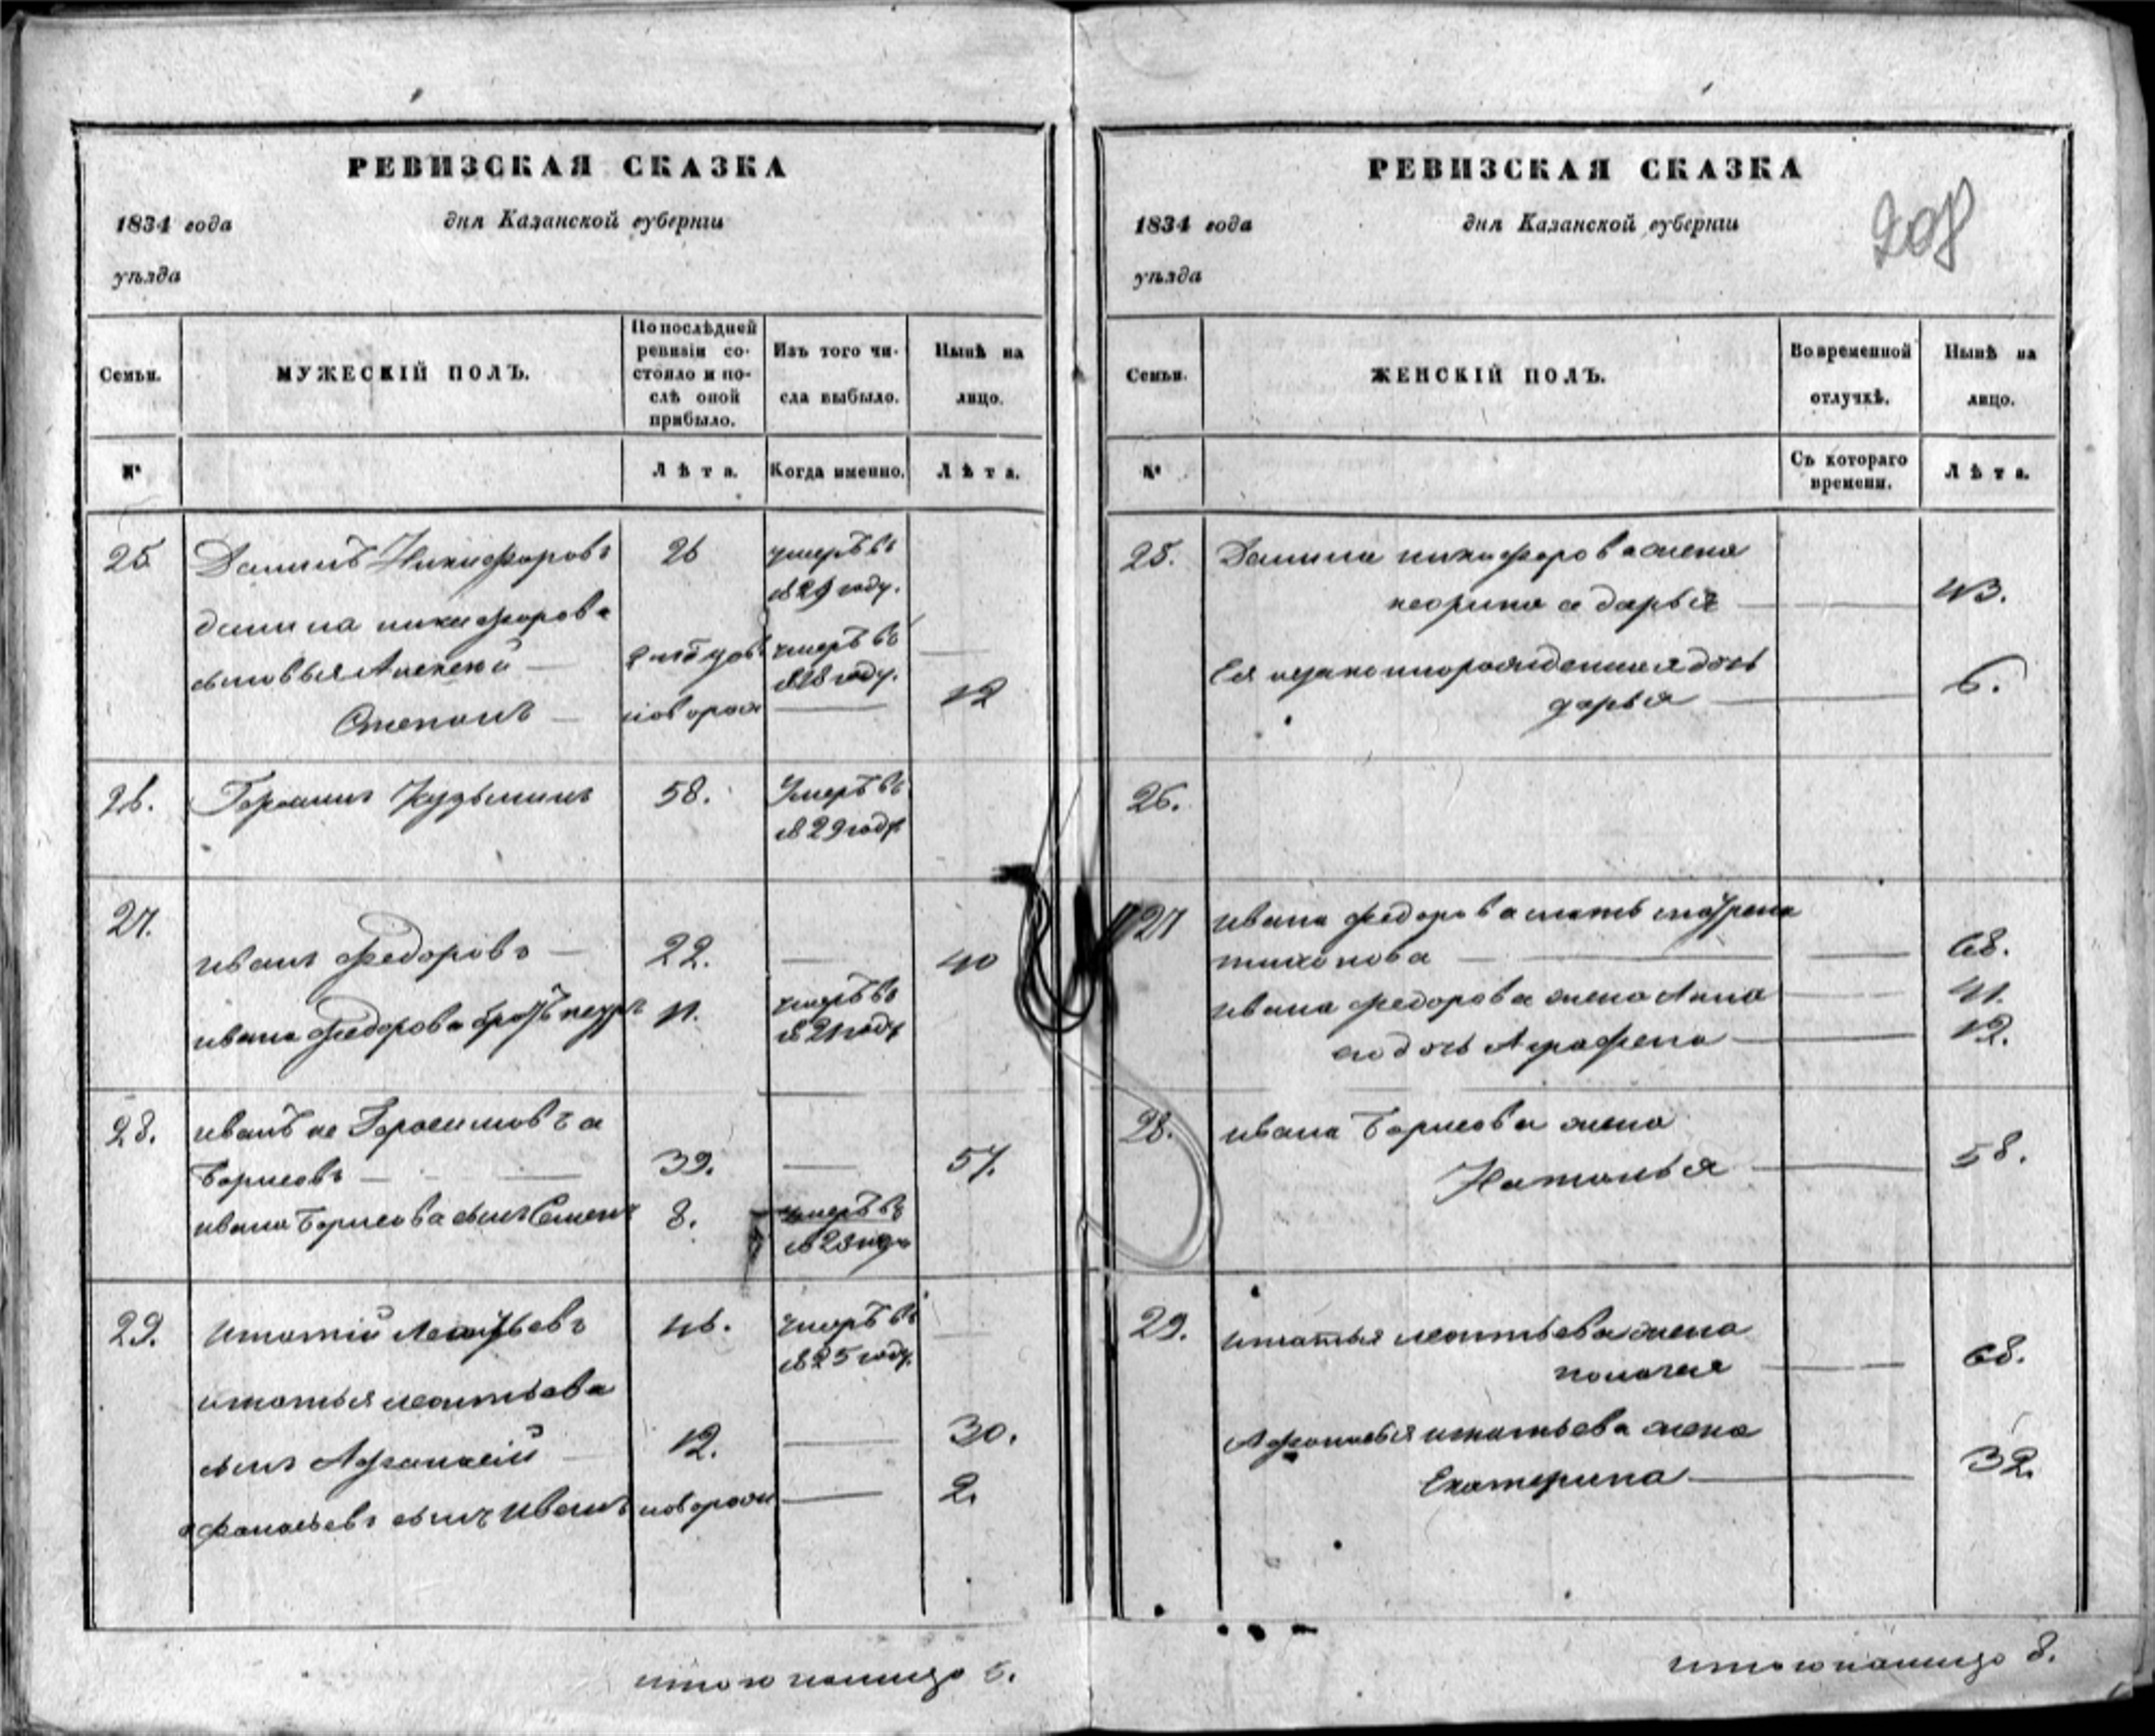 РЕВИЗСКАЯ СКАЗКА
1834 года дня Казанской губерніи
уѣзда
Семьи.
МУЖЕСКІЙ ПОЛЪ.
По послѣдней
ревизіи со-
стояло и по-
слѣ оной
прибыло.
Изъ того чи-
сла выбыло.
Нынѣ на
лицо.
№
Лѣта.
Когда именно.
Лѣта.
25 Данилъ Никифоровъ 26 умеръ въ
1829 году.
данила никифорова
сыновья Алексей умеръ въ
1828 году.
Степанъ новорож 12
26. Кузьминъ 58. Умеръ въ
1829 году
27.
иванъ федоровъ 22. 40
ивана федорова братъ петръ 11. умеръ въ
году
28. иванъ не Гарасимовъ а
Борисовъ 39. 57.
ивана Борисова сынъ Семенъ 8. умеръ въ
29. игнатий Леонтьевъ 46. умеръ въ
1825 году.
игнатья леонтьева
сынъ Афанасій 12. 30.
афанасьевъ сынъ Иванъ новорож 2.
итого налицо 5.
РЕВИЗСКАЯ СКАЗКА
208
1834 года дня Казанской губерніи
уѣзда
Семьи.
ЖЕНСКІЙ ПОЛЪ.
Во временной
отлучкѣ.
Нынѣ на
лицо.
№
Съ котораго
времени.
Лѣта.
25. Данила никифорова жена
не орина а дарья 43.
Ея незаконнорожденная дочь
дарья 6.
26.
27 ивана федорова мать матрена
тихонова 68.
ивана федорова жена Анна 41.
его дочь Аграфена 12.
28. ивана Борисова жена
Наталья 58.
29. игнатья леонтьева жена
пелагея 68.
Афанасья игнатьева жена
Екатерина 32.
итого налицо 8.